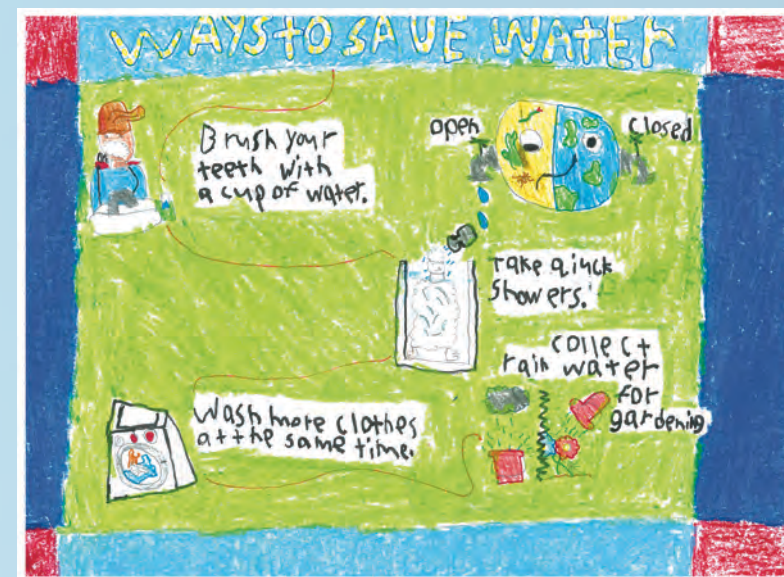 WAYS TO SAVE WATER
Brush your
teeth with
a cup of water.
open
closed
Take qiuck
Showers.
collect
rain water
for
gardening
Wash more clothes
at the same time.